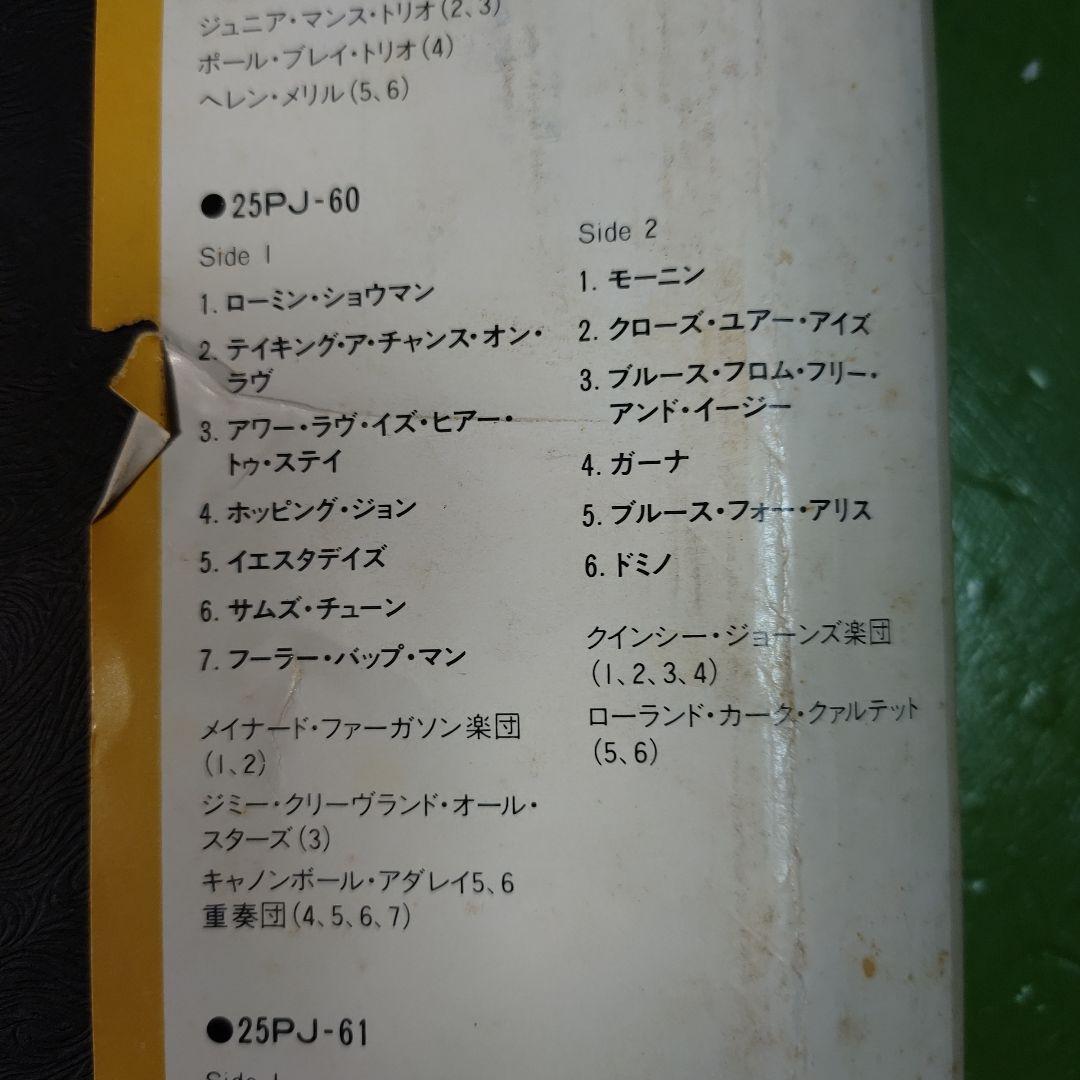 ジュニア・マンス・トリオ(2、3)
ポール・ブレイ・トリオ(4)
ヘレン・メリル(5、6)
●25PJ-60
Side 1
1. ローミン・ショウマン
2. テイキング・ア・チャンス・オン・
ラヴ
3. アワー・ラヴ・イズ・ヒアー・
トゥ・ステイ
4. ホッピング・ジョン
5. イエスタデイズ
6. サムズ・チューン
7. フーラー・バップ・マン
メイナード・ファーガソン楽団
(1、2)
ジミー・クリーヴランド・オール・
スターズ(3)
キャノンボール・アダレイ5、6
重奏団(4、5、6、7)
Side 2
1. モーニン
2. クローズ・ユアー・アイズ
3. ブルース・フロム・フリー・
アンド・イージー
4. ガーナ
5. ブルース・フォー・アリス
6. ドミノ
クインシー・ジョーンズ楽団
(1、2、3、4)
ローランド・カーク・クァルテット
(5、6)
●25PJ-61
Side 1